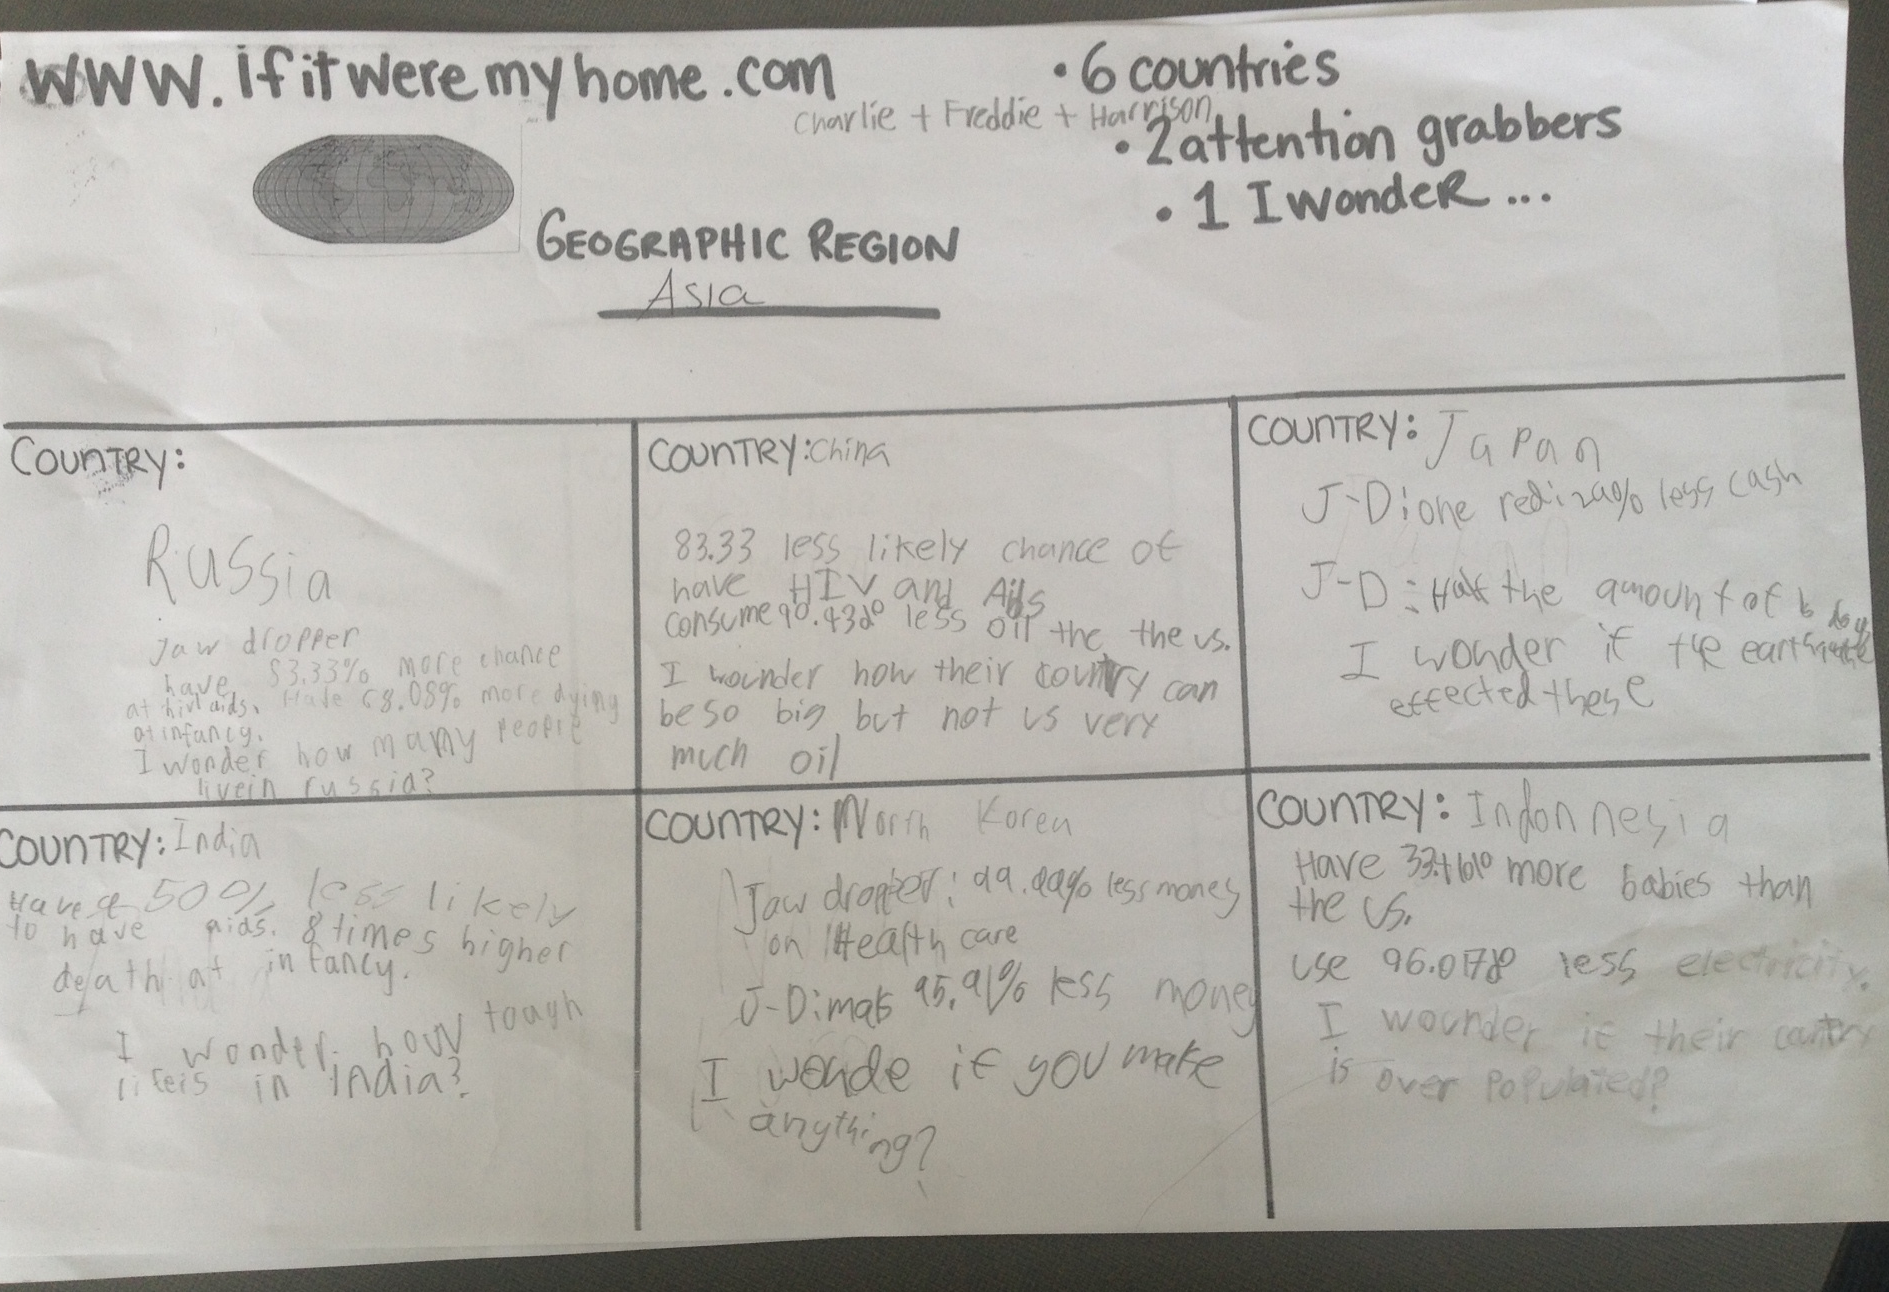 www.ifitweremyhome.com
• 6 countries
Charlie + Freddie + Harrison
• 2 attention grabbers
• 1 I wonder...
GEOGRAPHIC REGION
Asia
COUNTRY:
Russia
Jaw dropper
have 83.33% more chance
at hiv aids. Have 68.08% more dying
at infancy.
I wonder how many people
live in russia?
COUNTRY: China
83.33 less likely chance of
have HIV and Aids
consume 90.43% less oil the the us.
I wounder how their country can
be so big but not us very
much oil
COUNTRY: Japan
J-D: one less cash
J-D: Half the amount of
I wonder if the earthquake
effected these
COUNTRY: India
Have a 50% less likely
to have aids. 8 times higher
death at infancy.
I wonder how tough
life is in india?
COUNTRY: North Korea
Jaw dropper: 99.99% less money
on Health care
J-D: 95.91% less money
I wonde if you make
anything?
COUNTRY: Indonnesia
Have more babies than
the us.
use less electricity.
I wounder if their
is over populated?